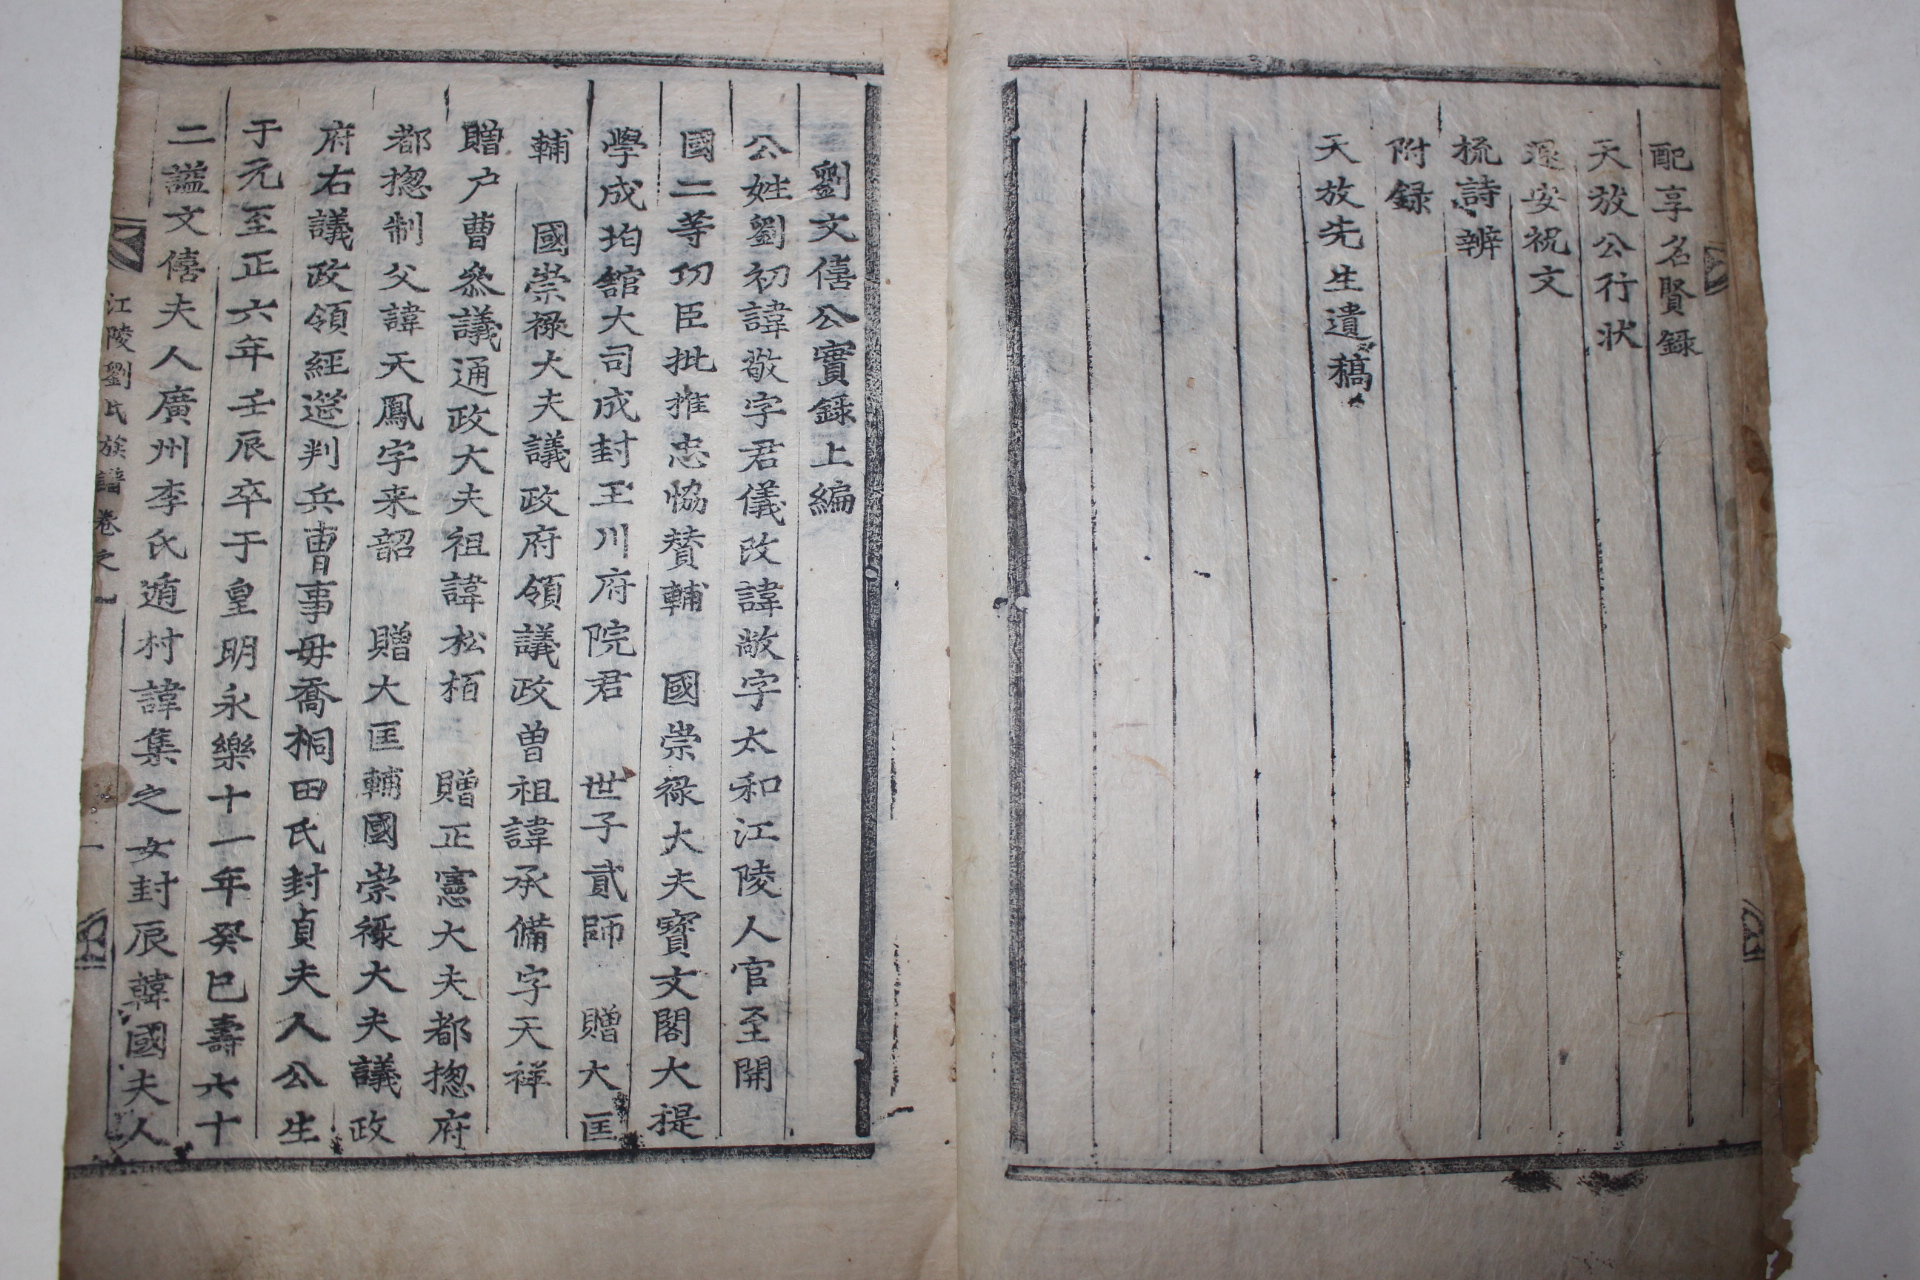 配享名賢録
天放公行狀
還安祝文
梳詩辨
附録
天放先生遺稿
劉文僖公實録上編
公姓劉初諱敬字君儀改諱敞字太和江陵人官至開
國二等功臣批推忠恊賛輔　國崇禄大夫寶文閣大提
學成均舘大司成封玉川府院君　世子貳師　贈大匡
輔　國崇禄大夫議政府領議政曾祖諱承備字天祥
贈户曹叅議通政大夫祖諱松栢　贈正憲大夫都揔府
都揔制父諱天鳳字来韶　贈大匡輔國崇禄大夫議政
府右議政領經筵判兵曹事母喬桐田氏封貞夫人公生
于元至正六年壬辰卒于皇明永樂十一年癸巳壽六十
二諡文僖夫人廣州李氏遁村諱集之女封辰韓國夫人
江陵劉氏族譜卷之一
一